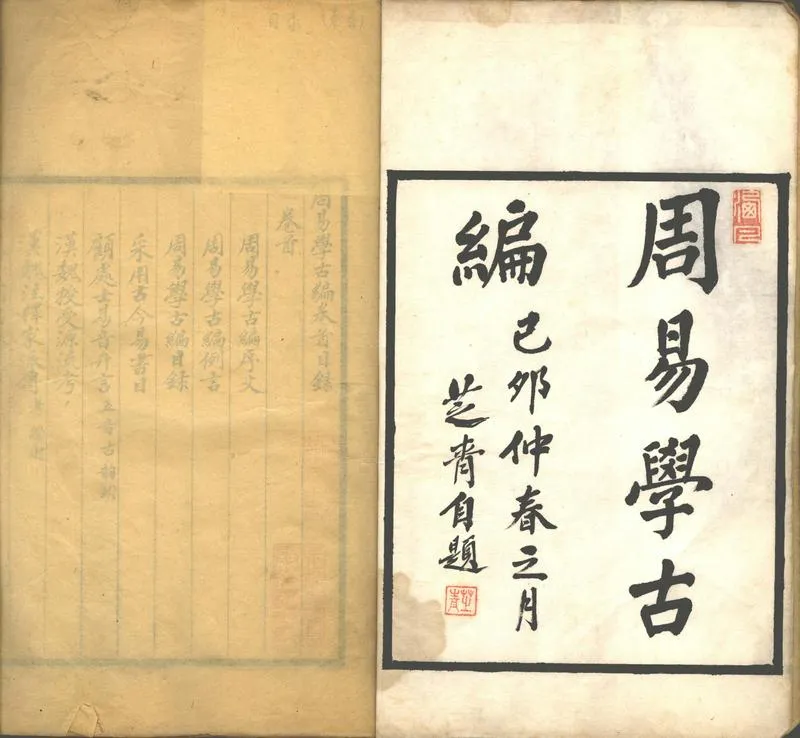 周易學古
編
己卯仲春之月
芝青自題
芝青
周易學古編卷首目錄
卷首
周易學古編序文
周易學古編例言
周易學古編目錄
采用古今易書目
顧處士易音升言
漢魏授受源流考